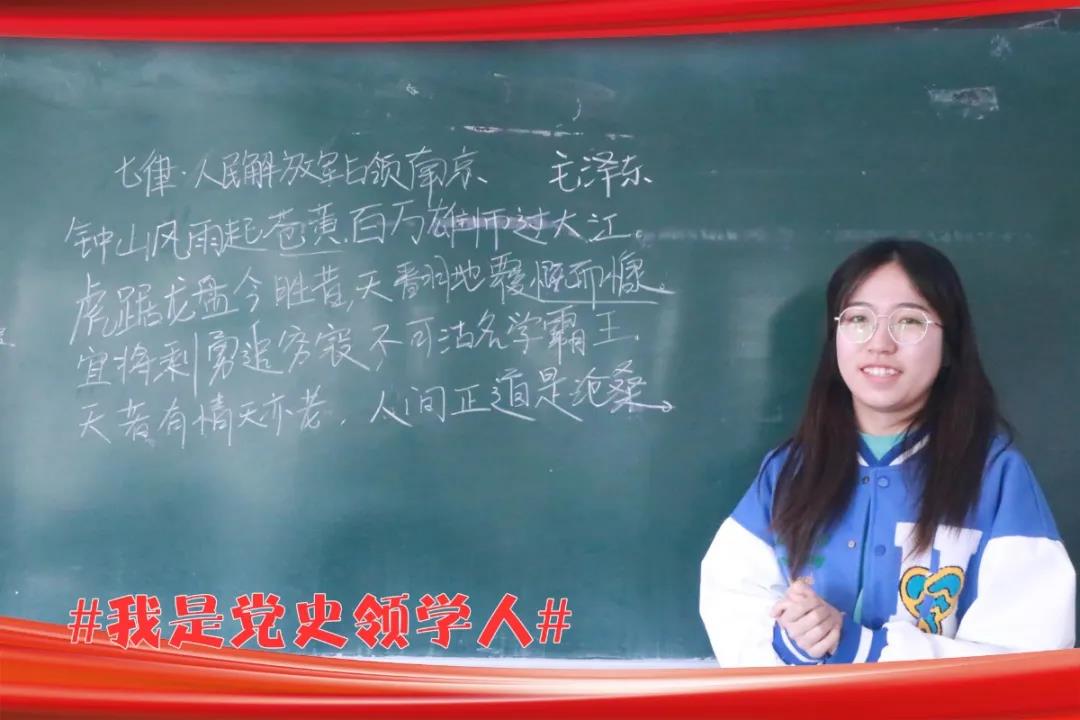 七律·人民解放军占领南京 毛泽东
钟山风雨起苍黄,百万雄师过大江。
虎踞龙盘今胜昔,天翻地覆慨而慷。
宜将剩勇追穷寇,不可沽名学霸王.
天若有情天亦老,人间正道是沧桑。
#我是党史领学人#